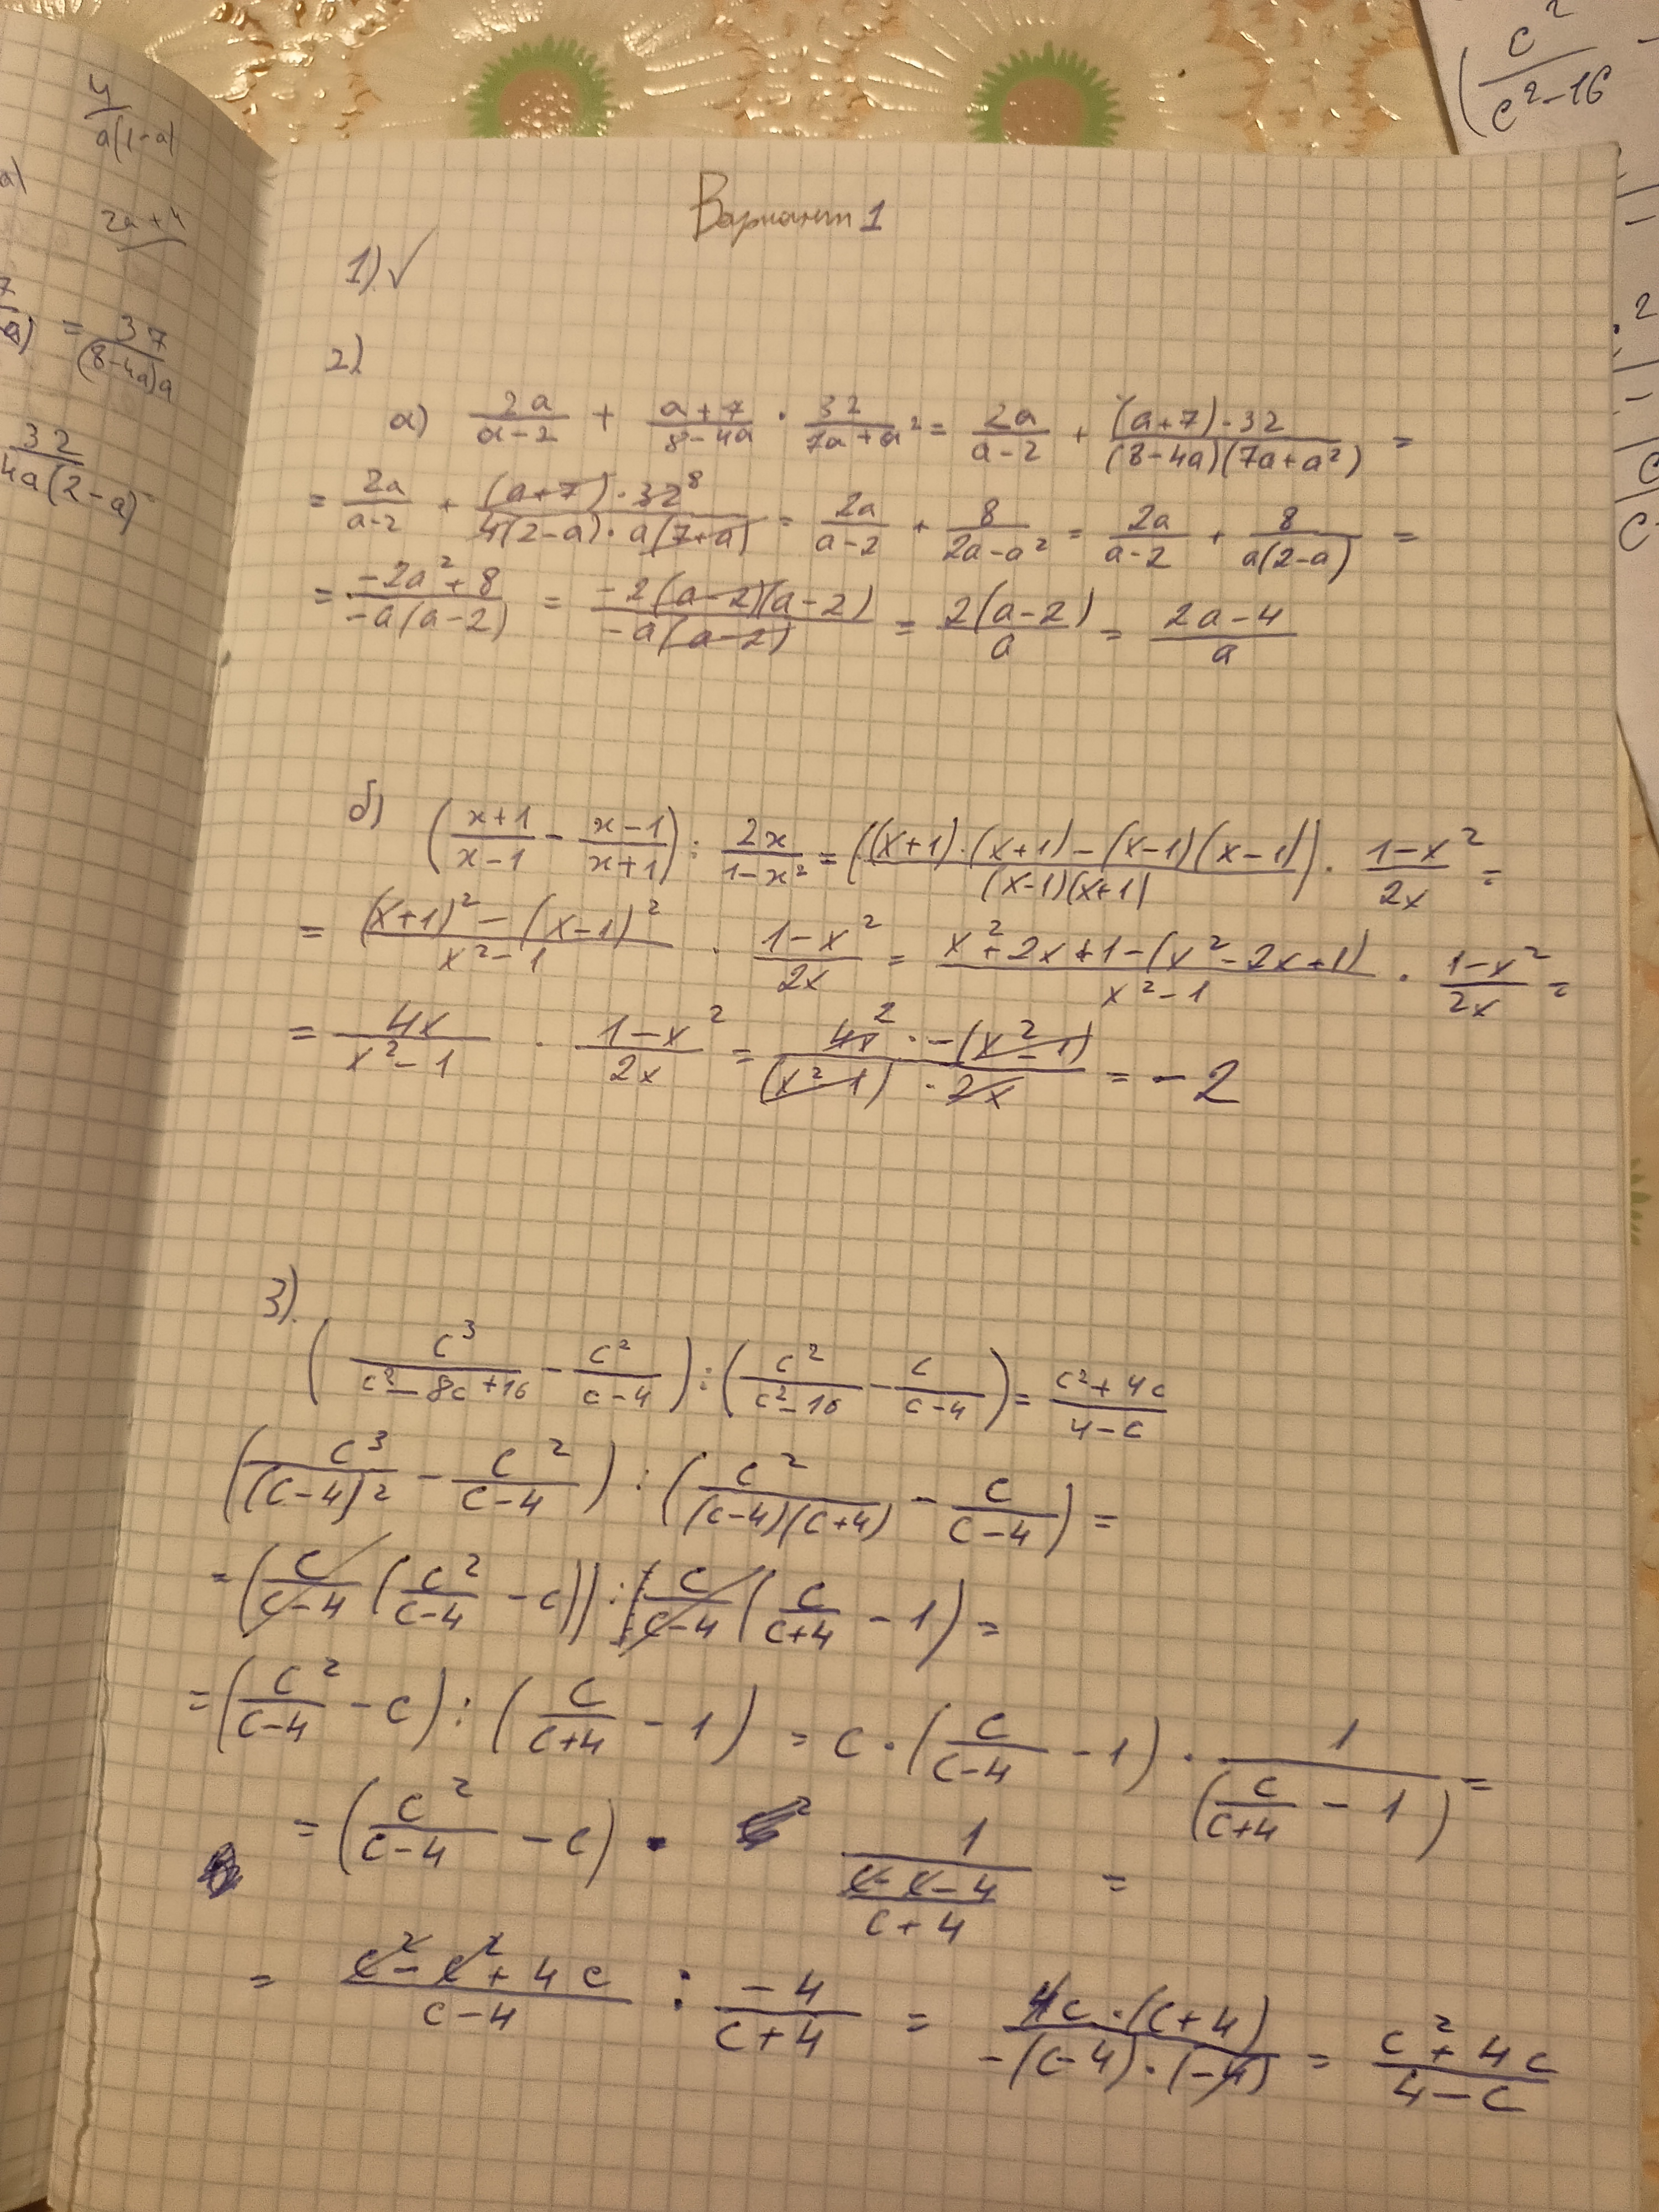 4/(a(1-a)
a)
2a+4
7/a) = 37/((8-4a)a
32/(4a(2-a)
(c²/(c²-16) -
Вариант 1
1) ✓
2)
а) 2a/(a-2) + (a+7)/(8-4a) · 32/(7a+a²) = 2a/(a-2) + ((a+7)·32)/((8-4a)(7a+a²)) =
= 2a/(a-2) + ((a+7)·32⁸)/(4(2-a)·a(7+a)) = 2a/(a-2) + 8/(2a-a²) = 2a/(a-2) + 8/(a(2-a)) =
= (-2a²+8)/(-a(a-2)) = (-2(a-2)(a-2))/(-a(a-2)) = 2(a-2)/a = (2a-4)/a
б) ((x+1)/(x-1) - (x-1)/(x+1)) : 2x/(1-x²) = (((x+1)·(x+1)-(x-1)(x-1))/((x-1)(x+1))) · (1-x²)/2x =
= ((x+1)²-(x-1)²)/(x²-1) · (1-x²)/2x = (x²+2x+1-(x²-2x+1))/(x²-1) · (1-x²)/2x =
= 4x/(x²-1) · (1-x²)/2x = (4x² · -(x²-1))/((x²-1) · 2x) = -2
3)
(c³/(c²-8c+16) - c²/(c-4)) : (c²/(c²-16) - c/(c-4)) = (c²+4c)/(4-c)
(c³/(c-4)² - c²/(c-4)) : (c²/((c-4)(c+4)) - c/(c-4)) =
= (c/(c-4) (c²/(c-4) - c)) : (c/(c-4) (c/(c+4) - 1) =
= (c²/(c-4) - c) : (c/(c+4) - 1) = c · (c/(c-4) - 1) · 1/(c/(c+4) - 1) =
= (c²/(c-4) - c) · 1/((c-c-4)/(c+4)) =
= (c²-c²+4c)/(c-4) : -4/(c+4) = (4c·(c+4))/(-(c-4)·(-4)) = (c²+4c)/(4-c)